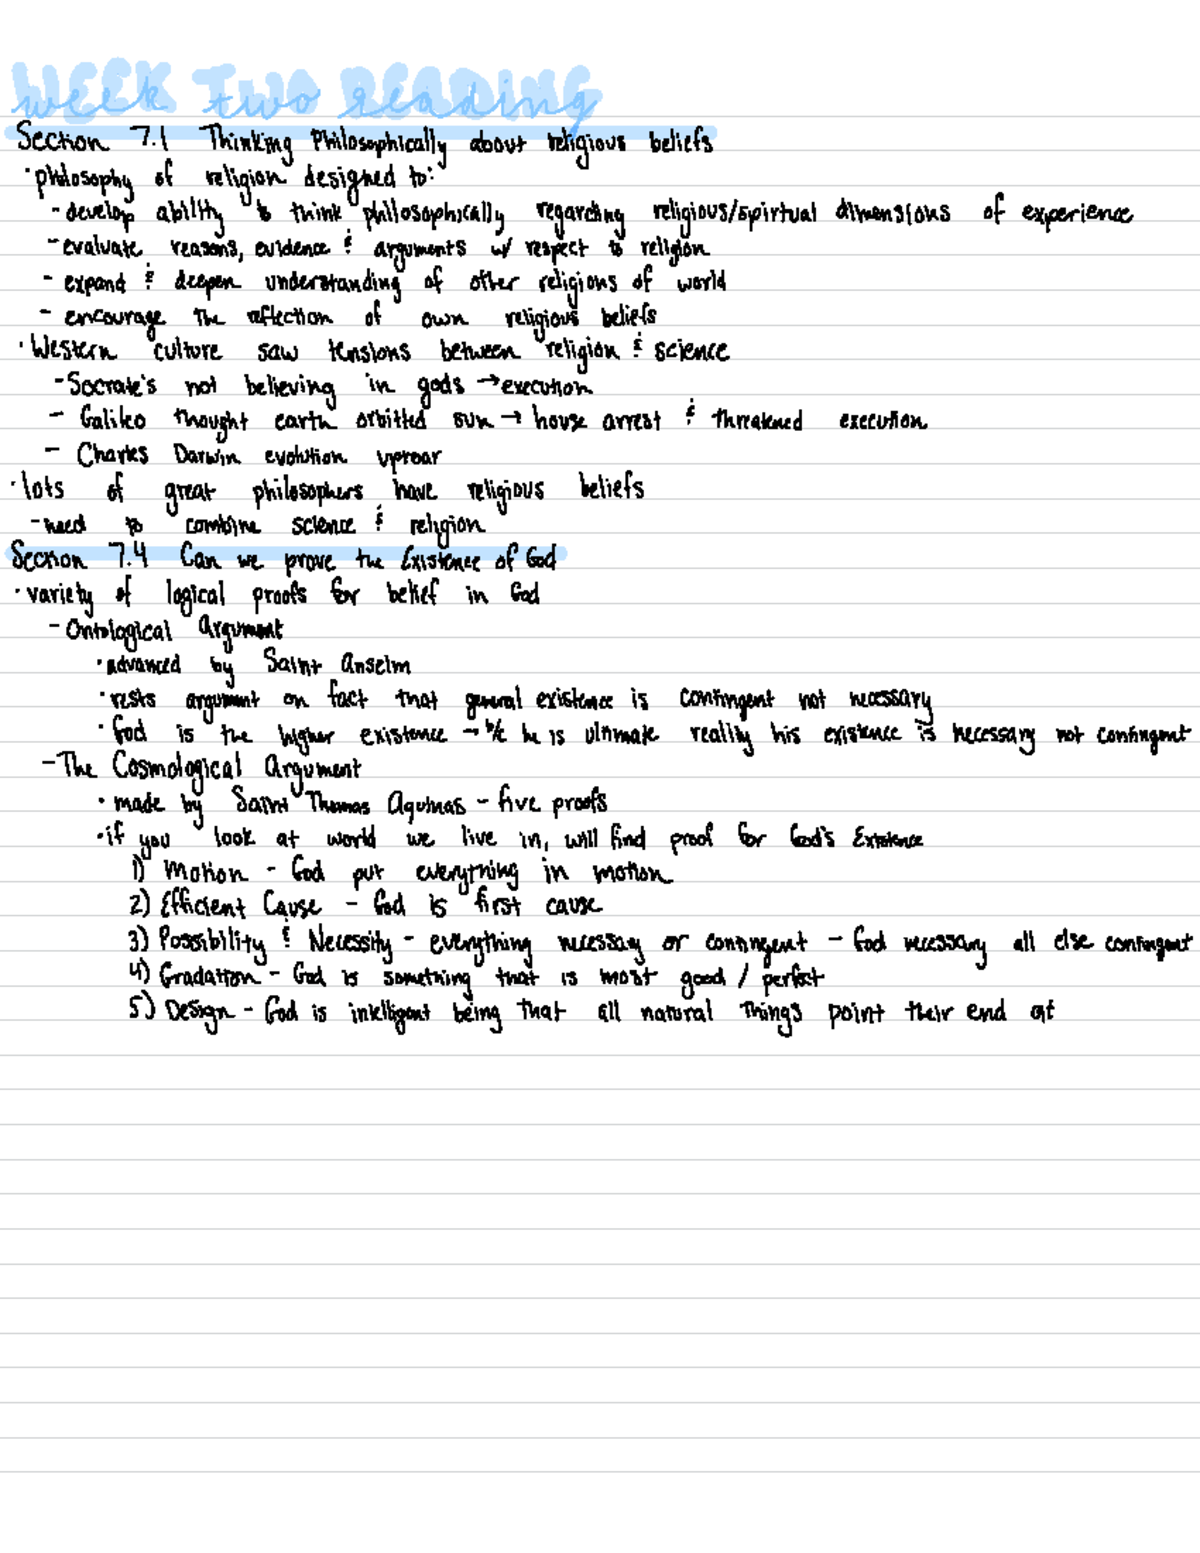 WEEK TWO READING
week two reading
Section 7.1 Thinking Philosophically about religious beliefs
· philosophy of religion designed to:
- develop ability to think philosophically regarding religious/spirtual dimensions of experience
- evaluate reasons, evidence & arguments w/ respect to religion
- expand & deepen understanding of other religions of world
- encourage the reflection of own religious beliefs
· Western culture saw tensions between religion & science
- Socrate's not believing in gods → execution
- Galileo thought earth orbitted sun → house arrest & threatened execution
- Charles Darwin evolution uproar
· lots of great philosophers have religious beliefs
- need to combine science & religion
Section 7.4 Can we prove the Existence of God
· variety of logical proofs for belief in God
- Ontological Argument
· advanced by Saint Anselm
· rests argument on fact that general existence is contingent not necessary
· God is the higher existence → b/c he is ultimate reality his existence is necessary not contingent
- The Cosmological Argument
· made by Saint Thomas Aquinas - five proofs
· if you look at world we live in, will find proof for God's Existence
1) Motion - God put everything in motion
2) Efficient Cause - God is first cause
3) Possibility & Necessity - everything necessary or contingent - God necessary all else contingent
4) Gradation - God is something that is most good / perfect
5) Design - God is intelligent being that all natural things point their end at